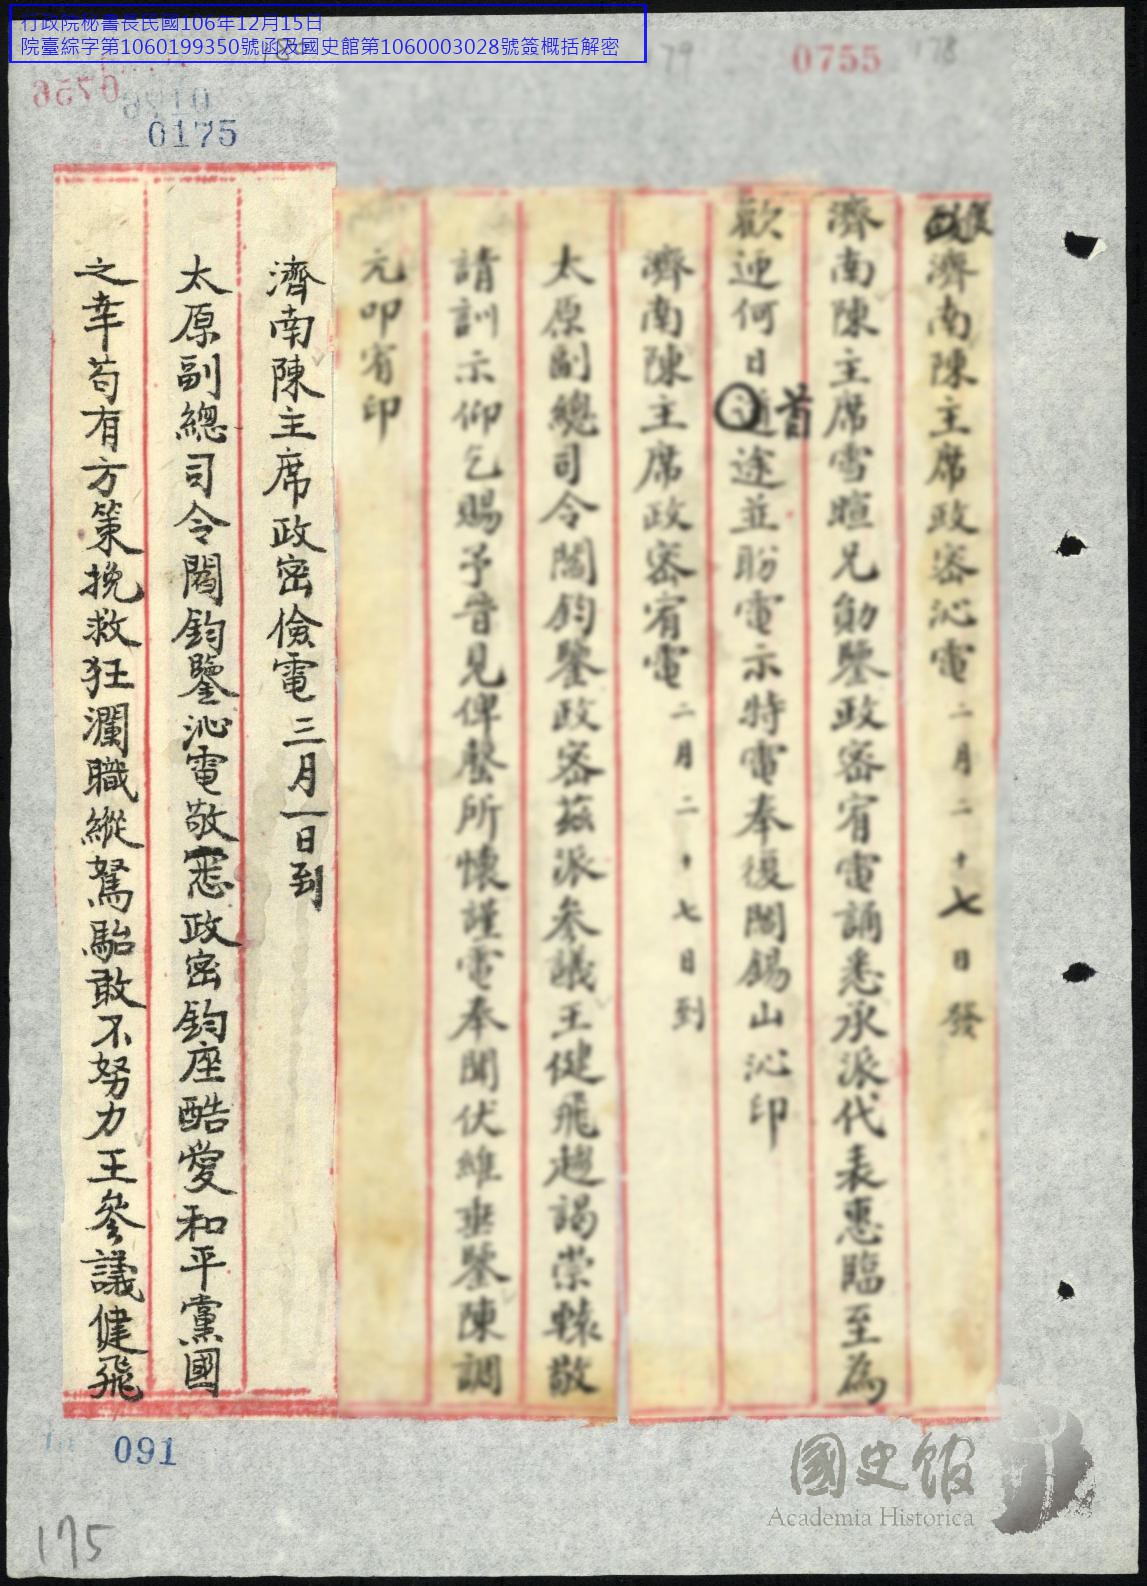 行政院秘書長民國106年12月15日
院臺綜字第1060199350號函及國史館第1060003028號簽概括解密
0755
178
79
0756
0176
0175
復濟南陳主席政密沁電二月二十七日發
濟南陳主席雪暄兄勛鑒政密宥電誦悉承派代表惠臨至為
歡迎何日首途並盼電示特電奉復閻錫山沁印
濟南陳主席政密宥電二月二十七日到
太原副總司令閻鈞鑒政密茲派參議王健飛趨謁崇轅敬
請訓示仰乞賜予晉見俾罄所懷謹電奉聞伏維垂鑒陳調
元叩宥印
濟南陳主席政密儉電三月一日到
太原副總司令閻鈞鑒沁電敬悉政密鈞座酷愛和平黨國
之幸苟有方策挽救狂瀾職縱駑駘敢不努力王參議健飛
091
175
國史館
Academia Historica